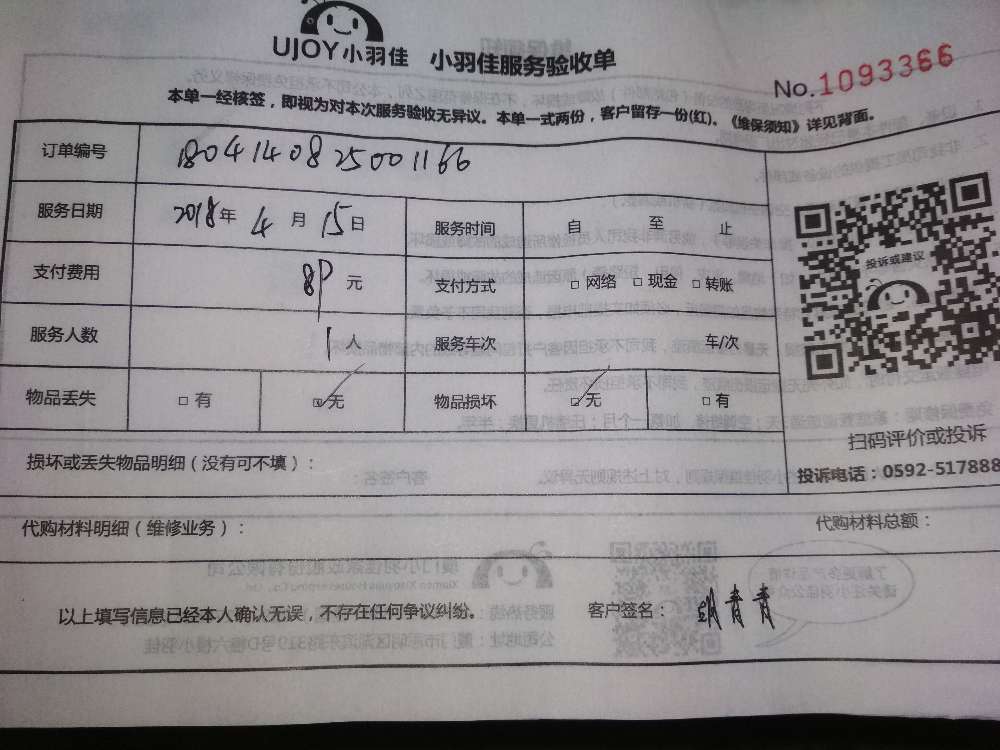 UJOY小羽佳 小羽佳服务验收单
No.1093366
本单一经核签，即视为对本次服务验收无异议。本单一式两份，客户留存一份(红)。《维保须知》详见背面。
订单编号 180414082500 1166
服务日期 2018年 4月 15日 服务时间 自 至 止
支付费用 元 支付方式 □网络 □现金 □转账
服务人数 1人 服务车次 车/次
物品丢失 □有 ☑无 物品损坏 ☑无 □有
投诉或建议
扫码评价或投诉
损坏或丢失物品明细（没有可不填）：
投诉电话：0592-517888
代购材料明细（维修业务）： 代购材料总额：
以上填写信息已经本人确认无误，不存在任何争议纠纷。 客户签名： 胡青青